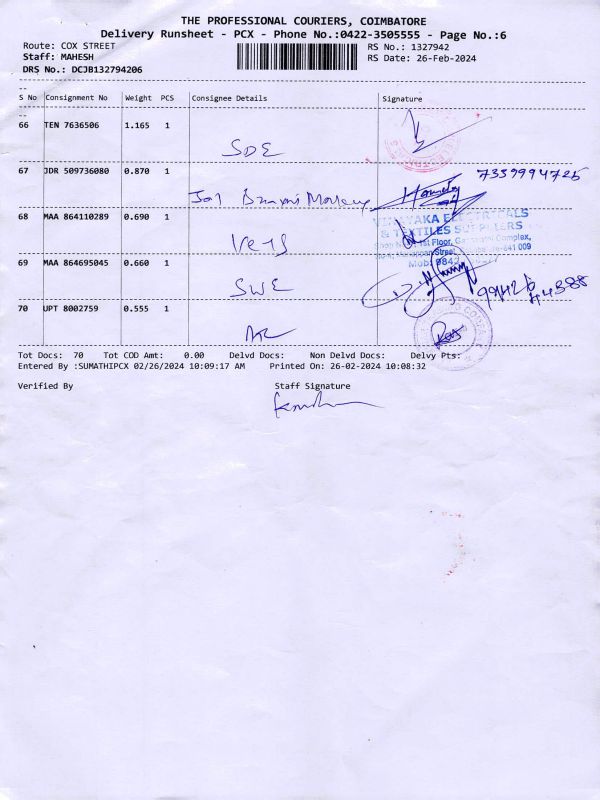 THE PROFESSIONAL COURIERS, COIMBATORE
Delivery Runsheet - PCX - Phone No.:0422-3505555 - Page No.:6
Route: COX STREET
Staff: MAHESH
DRS No.: DCJB132794206
RS No.: 1327942
RS Date: 26-Feb-2024
S No Consignment No Weight PCS Consignee Details Signature
66 TEN 7636506 1.165 1
SDE
67 JDR 509736080 0.870 1
7339994725
68 MAA 864110289 0.690 1
VINAYAKA ELECTRICALS
& TEXTILES SUPPLIERS
1st Floor, Complex,
69 MAA 864695045 0.660 1
SWE
70 UPT 8002759 0.555 1
Tot Docs: 70 Tot COD Amt: 0.00 Delvd Docs: Non Delvd Docs: Delvy Pts:
Entered By :SUMATHIPCX 02/26/2024 10:09:17 AM Printed On: 26-02-2024 10:08:32
Verified By Staff Signature